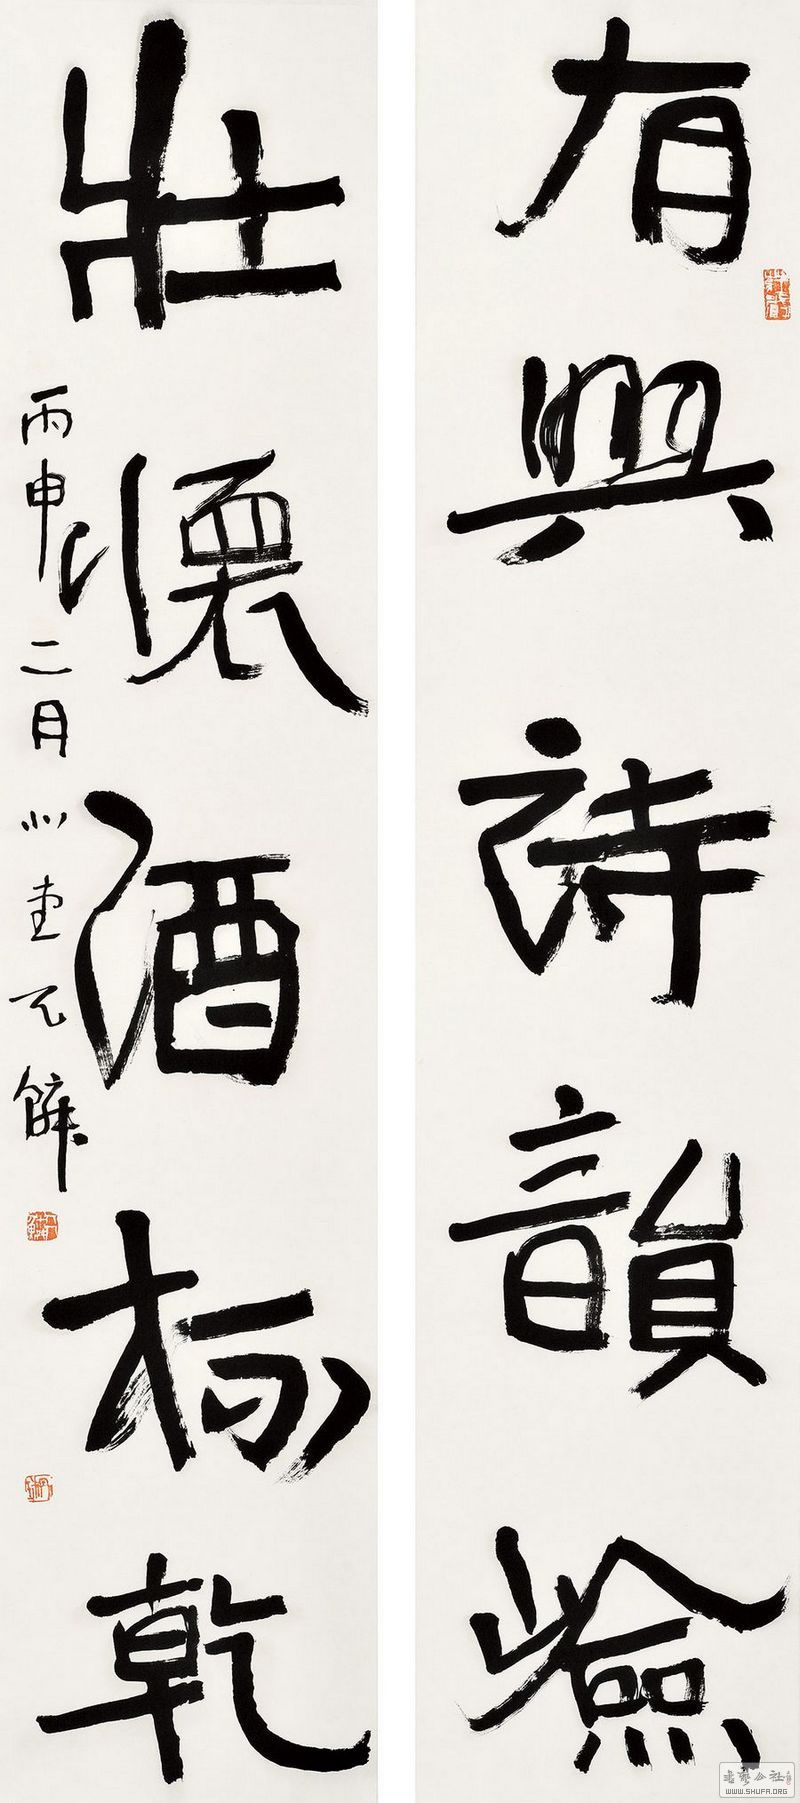 有興詩韻嶮
壯懷酒杨乾
丙申二月小堂元解
書艺公社
WWW.SHUFA.ORG